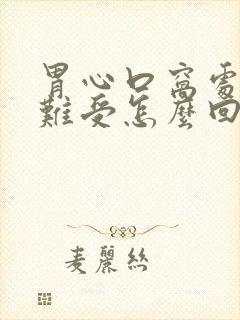 胃心口窩處
難受怎麼回
麦麗絲